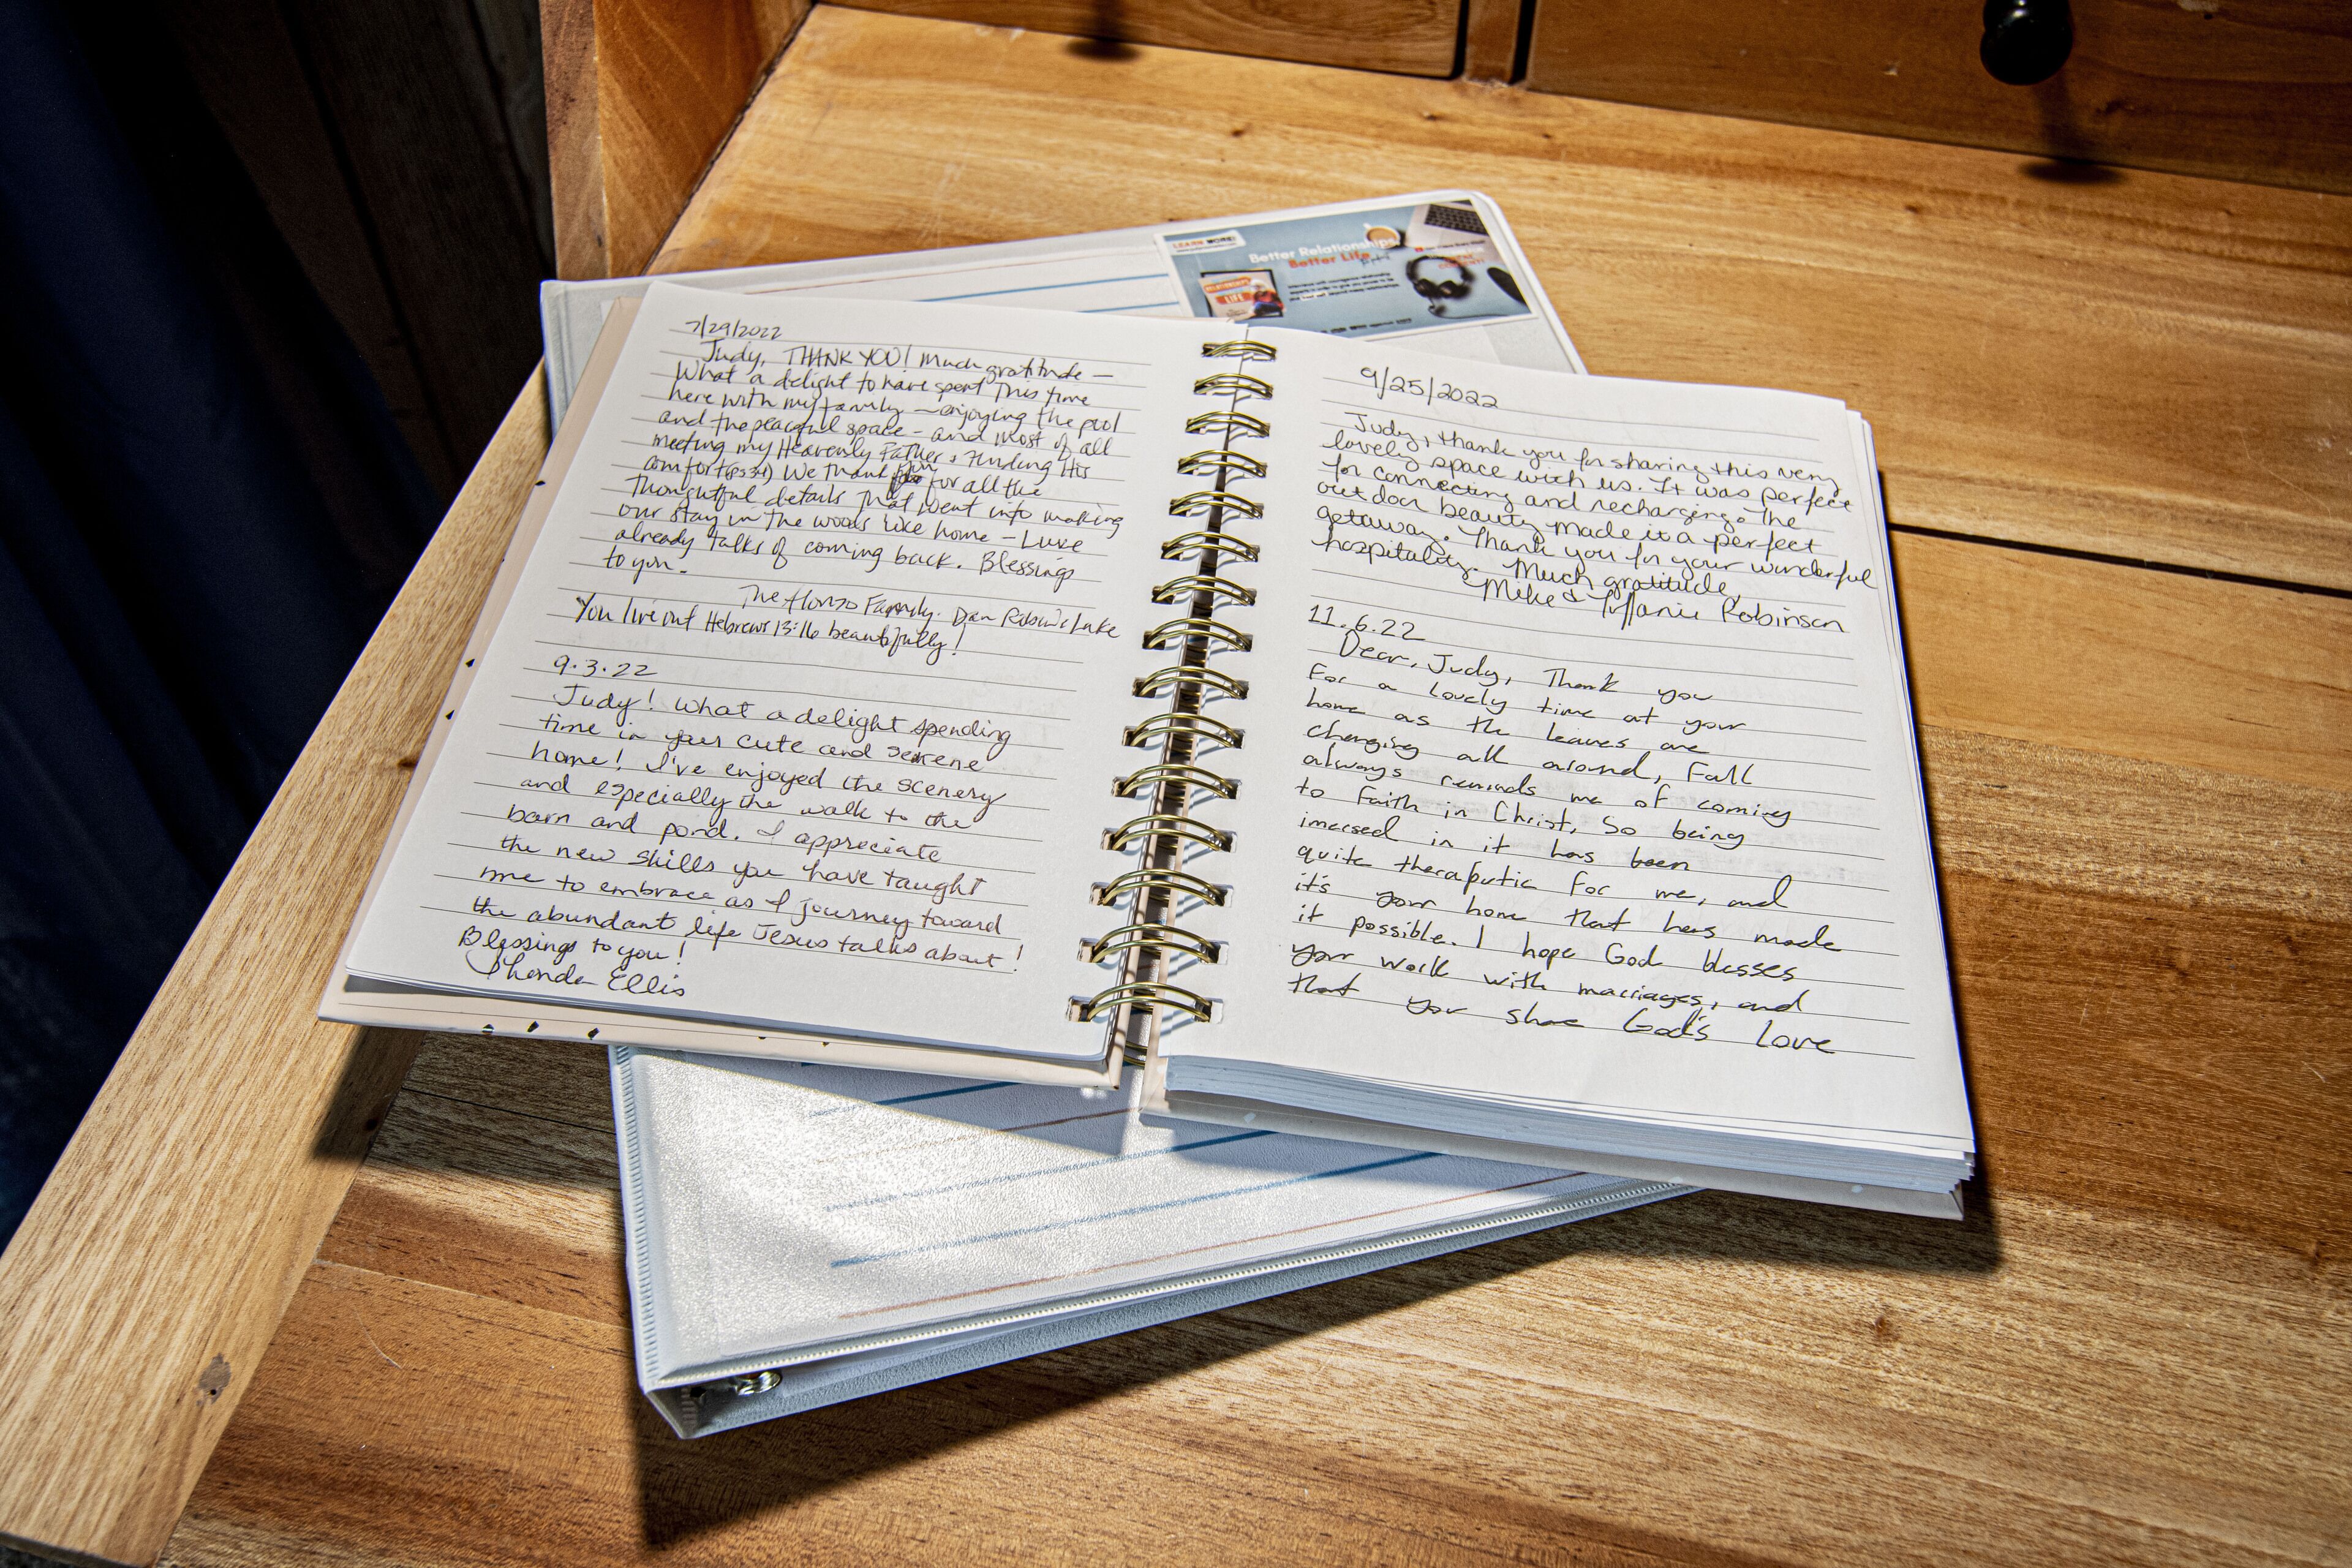 LEARN MORE!
Better Relationships
Better Life
LIFE
7/29/2022
Judy, THANK YOU! Much gratitude –
What a delight to have spent this time
here with my family – enjoying the pool
and the peaceful space – and most of all
meeting my Heavenly Father & finding His
comfort We thank you for all the
thoughtful details that went into making
our stay in the woods like home – Luke
already talks of coming back. Blessings
to you.
The Alonzo Family. Dan Robin & Luke
You live out Hebrews 13:16 beautifully!
9.3.22
Judy! What a delight spending
time in your cute and serene
home! I've enjoyed the scenery
and especially the walk to the
barn and pond. I appreciate
the new skills you have taught
me to embrace as I journey toward
the abundant life Jesus talks about!
Blessings to you!
Rhonda Ellis
9/25/2022
Judy, thank you for sharing this very
lovely space with us. It was perfect
for connecting and recharging. The
outdoor beauty made it a perfect
getaway. Thank you for your wonderful
hospitality. Much gratitude,
Mike & Tiffanie Robinson
11.6.22
Dear, Judy, Thank you
For a lovely time at your
home as the leaves are
changing all around, Fall
always reminds me of coming
to Faith in Christ, So being
imersed in it has been
quite theraputic for me, and
it's your home that has made
it possible. I hope God blesses
your work with marriages, and
that you share God's Love